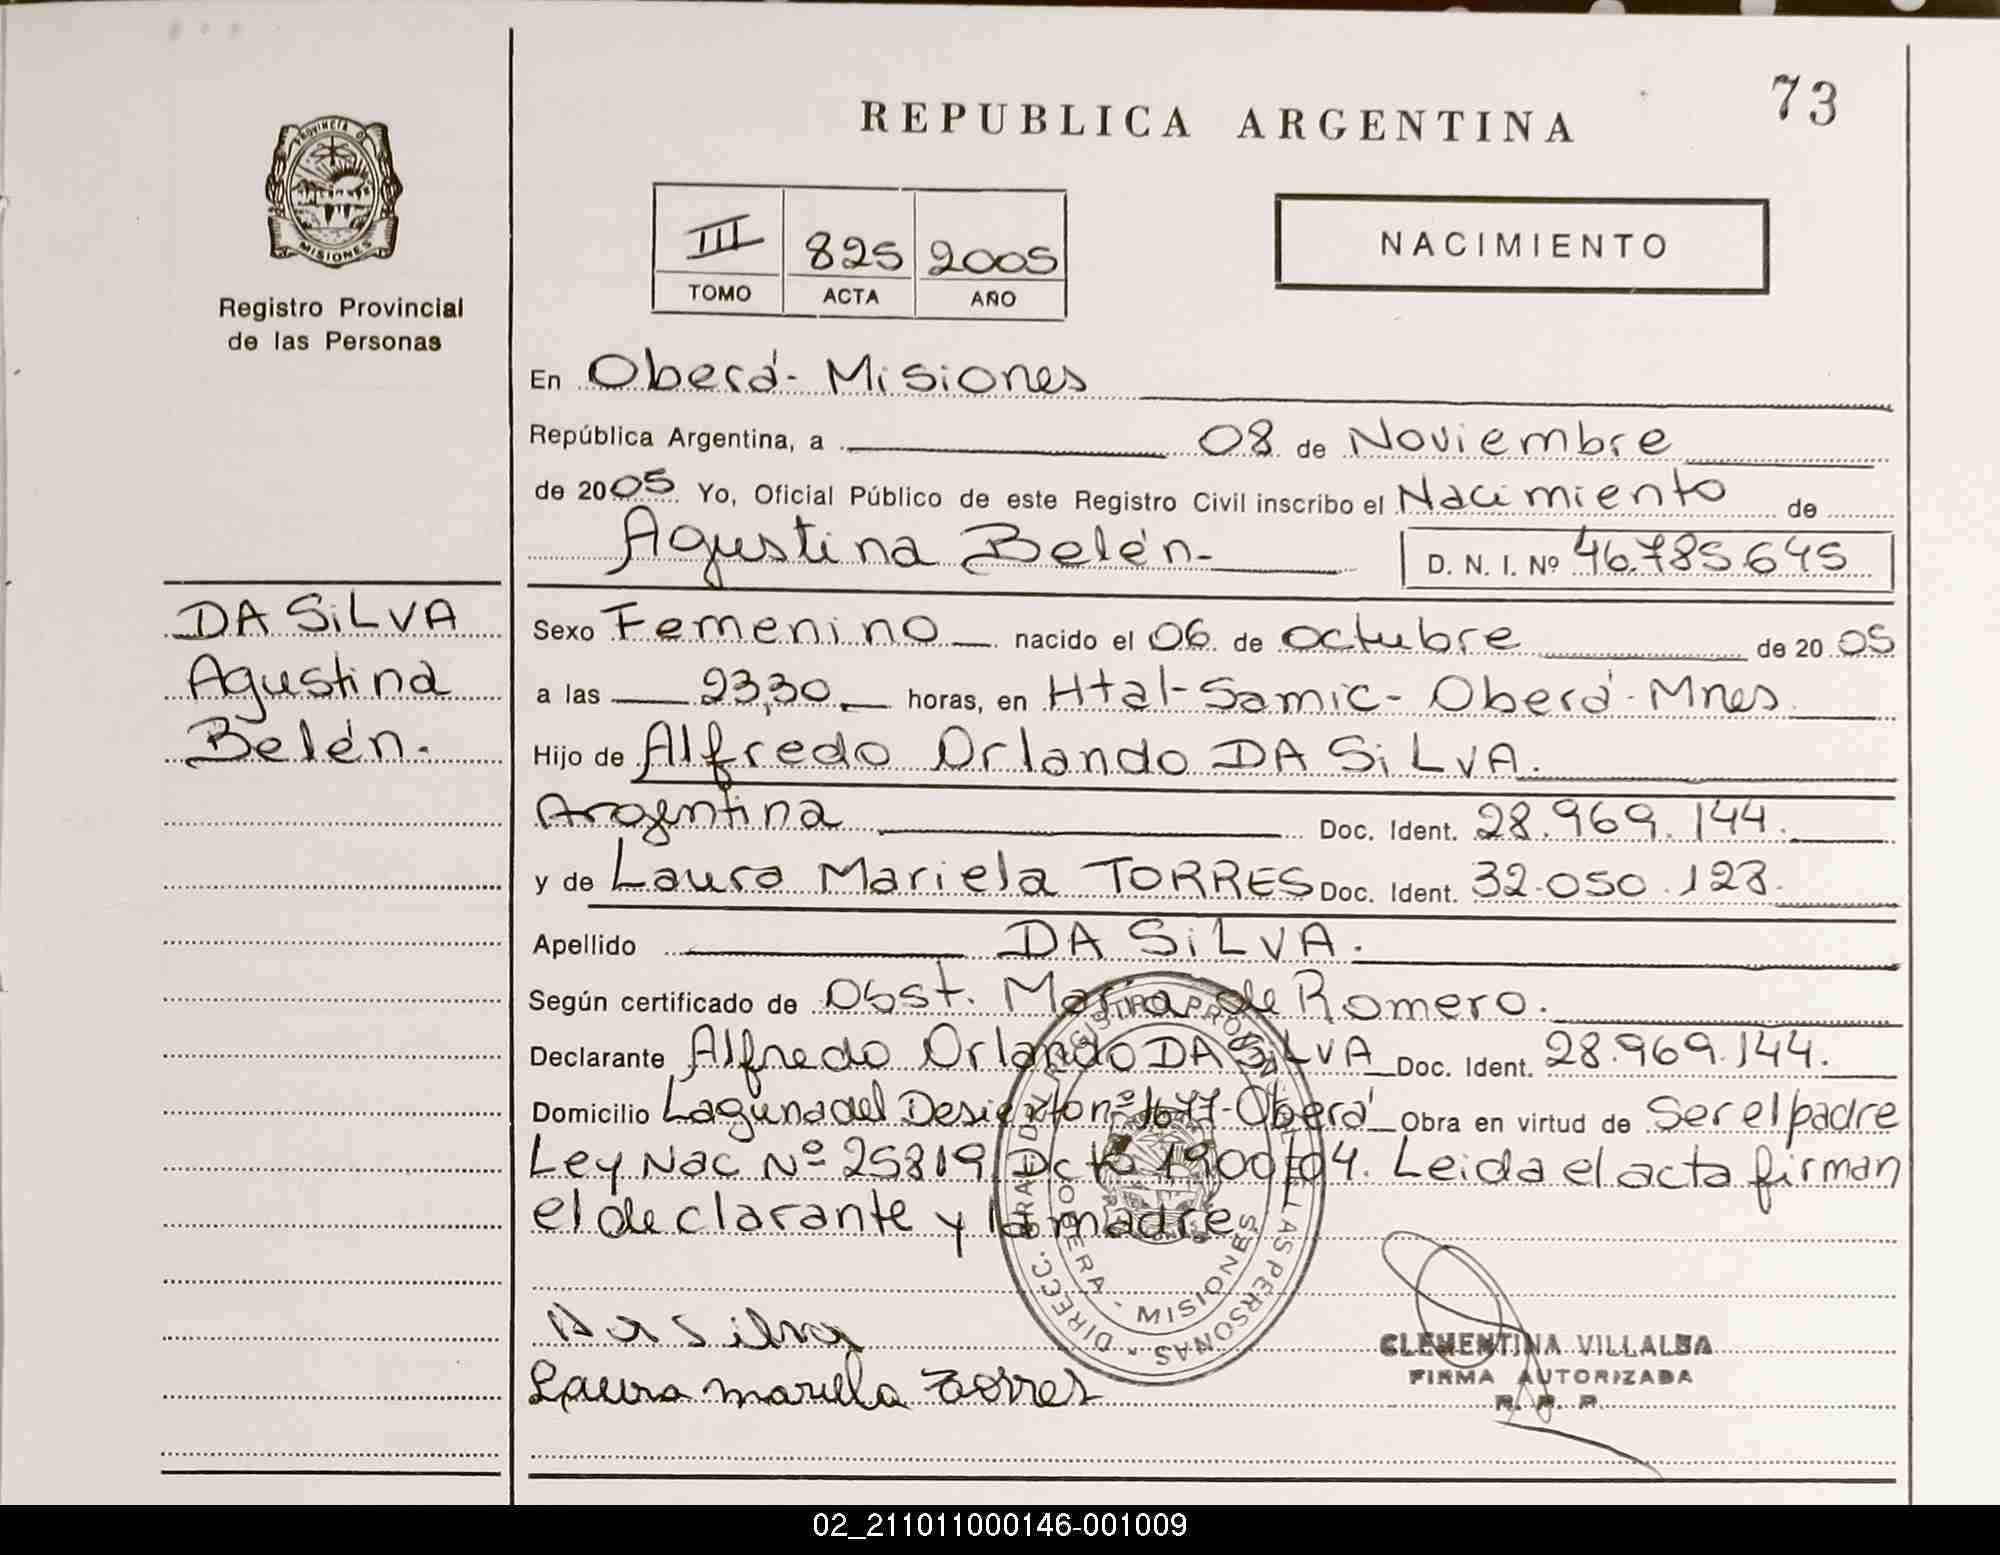 73
REPUBLICA ARGENTINA
PROVINCIA DE
MISIONES
Registro Provincial
de las Personas
III 825 2005
TOMO ACTA AÑO
NACIMIENTO
En Oberá- Misiones
República Argentina, a 08 de Noviembre
de 2005 Yo, Oficial Público de este Registro Civil inscribo el Nacimiento de
Agustina Belén- D. N. I. Nº 46.785.645
DA SiLVA
Agustina
Belén.
Sexo Femenino nacido el 06 de octubre de 2005
a las 23,30 horas, en Htal-Samic- Oberá-Mnes.
Hijo de Alfredo Orlando DA SiLVA.
Argentina Doc. Ident. 28.969.144.
y de Laura Mariela TORRES Doc. Ident. 32.050.123.
Apellido DA SiLVA.
Según certificado de Obst. Maria de Romero.
Declarante Alfredo Orlando DA SiLVA Doc. Ident. 28.969.144.
Domicilio Laguna del Desierto nº 1677-Oberá Obra en virtud de Ser el padre
Ley Nac Nº 25819 Dcto 1900/04. Leida el acta firman
el declarante y la madre
DIRECC. GRAL. DEL REGISTRO PROVINCIAL DE LAS PERSONAS
OBERA - MISIONES
Da Silva
Laura mariela Torres
CLEMENTINA VILLALBA
FIRMA AUTORIZADA
R. P. P.
02_211011000146-001009